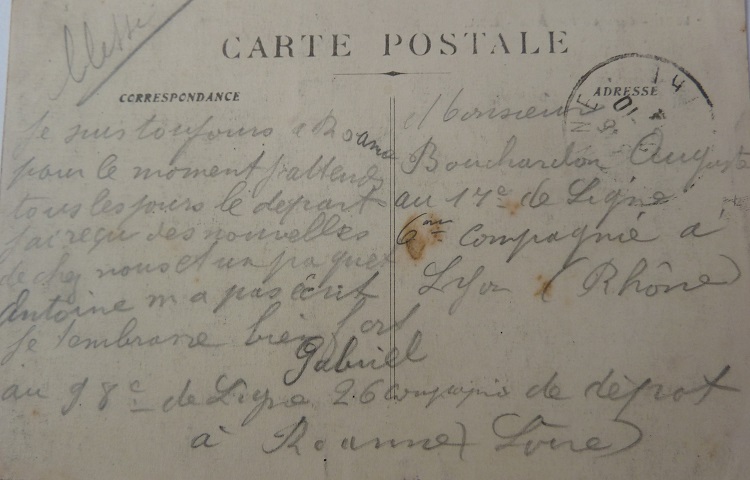 blessé
CARTE POSTALE
CORRESPONDANCE
Je suis toujours a Roanne
pour le moment j'attend
tous les jours le depart
j'ai reçu des nouvelles
de chez nous et un paquet
Antoine m a pas écrit
Je t'embrasse bien fort
Gabriel
au 98e de Ligne 26 compagnie de dèpot
à Roanne (Loire)
ADRESSE
Monsieur
Bouchardon Auguste
au 17e de Ligne
6me compagnie à
Lyon (Rhône)